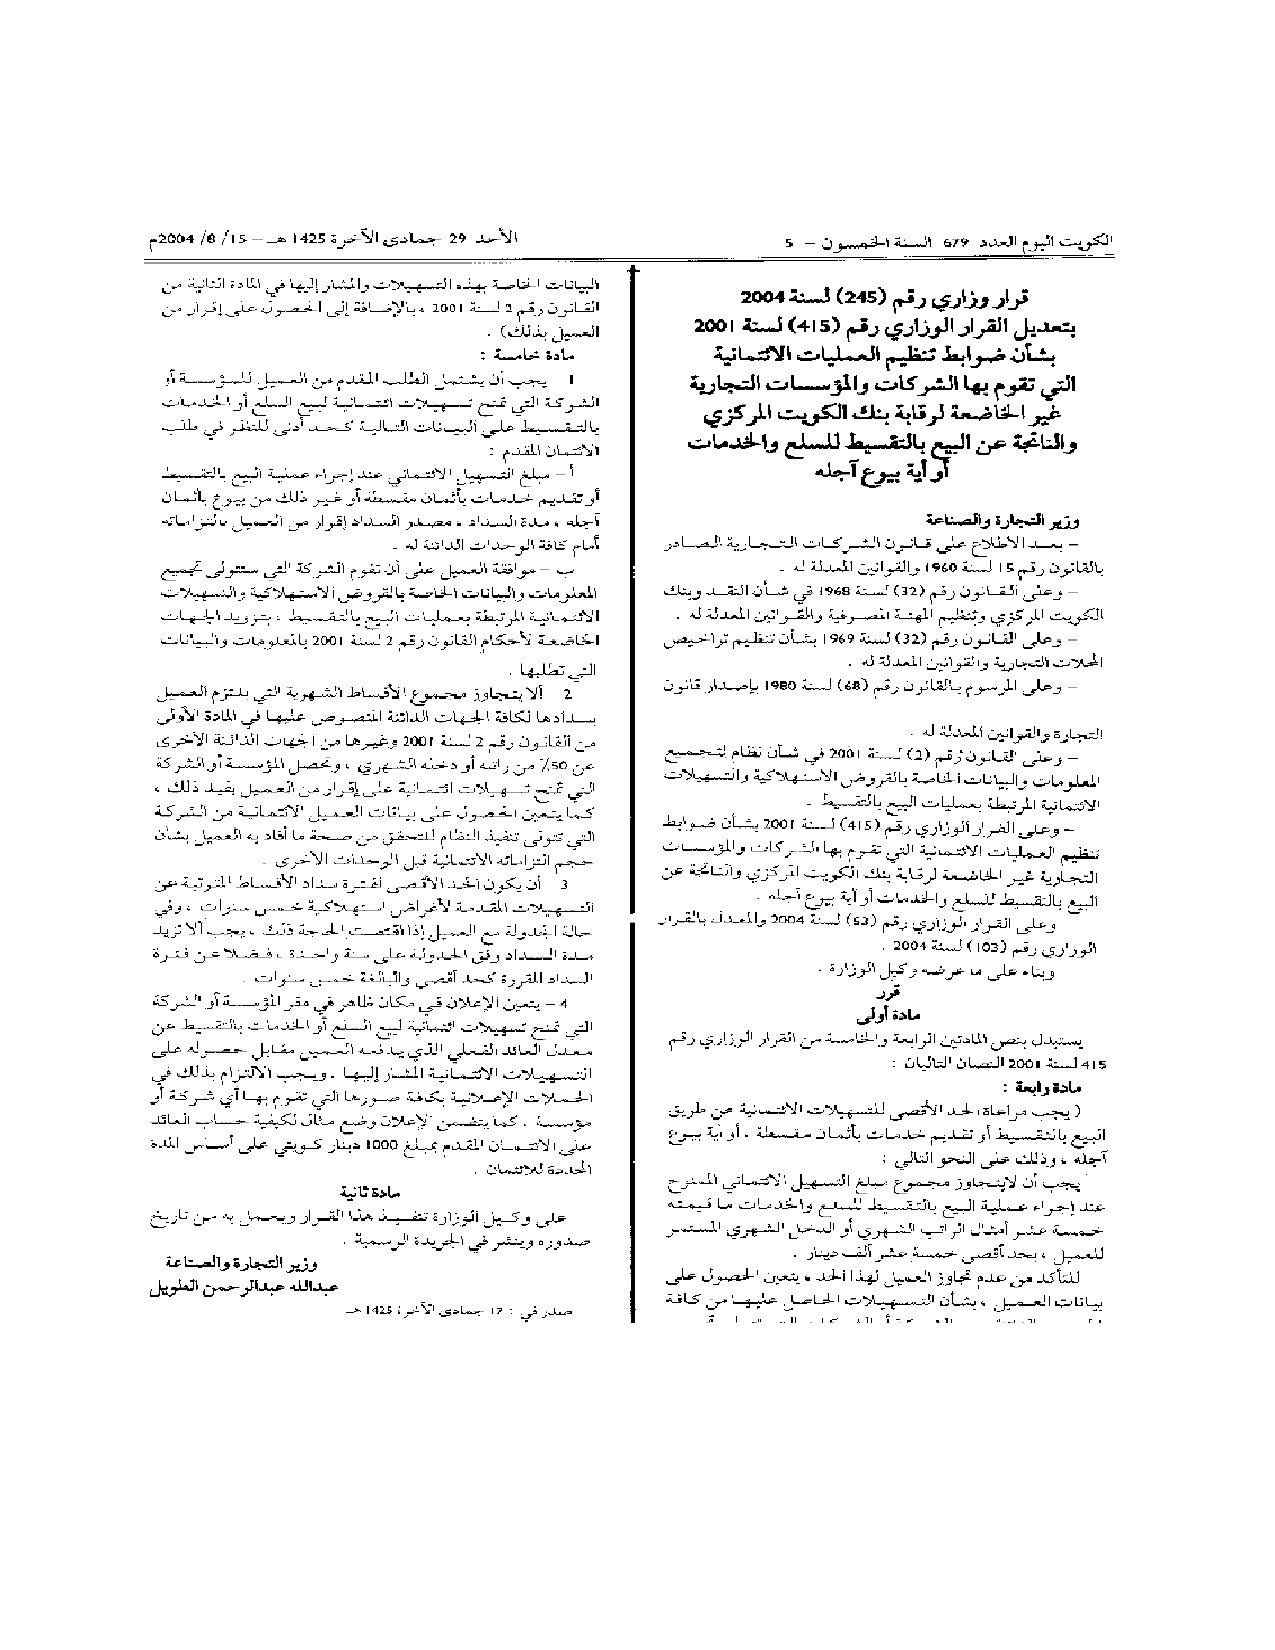 الكويت اليوم العدد 679 السنة الخمسون - 5
الأحد 29 جمادى الآخرة 1425 هـ - 15/ 8/ 2004م
قرار وزاري رقم (245) لسنة 2004
بتعديل القرار الوزاري رقم (415) لسنة 2001
بشأن ضوابط تنظيم العمليات الائتمانية
التي تقوم بها الشركات والمؤسسات التجارية
غير الخاضعة لرقابة بنك الكويت المركزي
والناتجة عن البيع بالتقسيط للسلع والخدمات
أو أية بيوع آجله
وزير التجارة والصناعة
- بعد الاطلاع على قانون الشركات التجارية الصادر
بالقانون رقم 15 لسنة 1960 والقوانين المعدلة له .
- وعلى القانون رقم (32) لسنة 1968 في شأن النقد وبنك
الكويت المركزي وتنظيم المهنة المصرفية والقوانين المعدلة له .
- وعلى القانون رقم (32) لسنة 1969 بشأن تنظيم تراخيص
المحلات التجارية والقوانين المعدلة له .
- وعلى المرسوم بالقانون رقم (68) لسنة 1980 بإصدار قانون
التجارة والقوانين المعدلة له .
- وعلى القانون رقم (2) لسنة 2001 في شأن نظام لتجميع
المعلومات والبيانات الخاصة بالقروض الاستهلاكية والتسهيلات
الائتمانية المرتبطة بعمليات البيع بالتقسيط .
- وعلى القرار الوزاري رقم (415) لسنة 2001 بشأن ضوابط
تنظيم العمليات الائتمانية التي تقوم بها الشركات والمؤسسات
التجارية غير الخاضعة لرقابة بنك الكويت المركزي والناتجة عن
البيع بالتقسيط للسلع والخدمات أو أية بيوع آجله .
وعلى القرار الوزاري رقم (53) لسنة 2004 والمعدل بالقرار
الوزاري رقم (103) لسنة 2004 .
وبناء على ما عرضه وكيل الوزارة .
قرر
مادة أولى
يستبدل بنص المادتين الرابعة والخامسة من القرار الوزاري رقم
415 لسنة 2001 النصان التاليان :
مادة رابعة :
( يجب مراعاة الحد الأقصى للتسهيلات الائتمانية عن طريق
البيع بالتقسيط أو تقديم خدمات بأثمان مقسطة . أو أية بيوع
آجله ، وذلك على النحو التالي :
يجب أن لايتجاوز مجموع مبلغ التسهيل الائتماني الممنوح
عند إجراء عملية البيع بالتقسيط للسلع والخدمات ما قيمته
خمسة عشر أمثال الراتب الشهري أو الدخل الشهري المستمر
للعميل ، بحد أقصى خمسة عشر ألف دينار .
للتأكد من عدم تجاوز العميل لهذا الحد ، يتعين الحصول على
بيانات العميل ، بشأن التسهيلات الحاصل عليها من كافة
البيانات الخاصة بهذه التسهيلات والمشار إليها في المادة الثانية من
القانون رقم 2 لسنة 2001 ، بالإضافة إلى الحصول على إقرار من
العميل بذلك) .
مادة خامسة :
1 يجب أن يشتمل الطلب المقدم من العميل للمؤسسة أو
الشركة التي تمنح تسهيلات ائتمانية لبيع السلع أو الخدمات
بالتقسيط على البيانات التالية كحد أدنى للنظر في طلب
الائتمان المقدم :
أ - مبلغ التسهيل الائتماني عند إجراء عملية البيع بالتقسيط
أو تقديم خدمات بأثمان مقسطة أو غير ذلك من بيوع بأثمان
آجله ، مدة السداد ، مصدر السداد إقرار من العميل بالتزاماته
أمام كافة الوحدات الدائنة له .
ب - موافقة العميل على أن تقوم الشركة التي ستتولى تجميع
المعلومات والبيانات الخاصة بالقروض الاستهلاكية والتسهيلات
الائتمانية المرتبطة بعمليات البيع بالتقسيط ، بتزويد الجهات
الخاضعة لأحكام القانون رقم 2 لسنة 2001 بالمعلومات والبيانات
التي تطلبها .
2 ألا يتجاوز مجموع الأقساط الشهرية التي يلتزم العميل
بسدادها لكافة الجهات الدائنة المنصوص عليها في المادة الأولى
من القانون رقم 2 لسنة 2001 وغيرها من الجهات الدائنة الأخرى
عن 50٪ من راتبه أو دخله الشهري ، وتحصل المؤسسة أو الشركة
التي تمنح تسهيلات ائتمانية على إقرار من العميل يفيد ذلك ،
كما يتعين الحصول على بيانات العميل الائتمانية من الشركة
التي تتولى تنفيذ النظام للتحقق من صحة ما أفاد به العميل بشأن
حجم التزاماته الائتمانية قبل الوحدات الأخرى .
3 أن يكون الحد الأقصى لفترة سداد الأقساط المترتبة عن
التسهيلات المقدمة لأغراض استهلاكية خمس سنوات ، وفي
حالة الجدولة مع العميل إذا اقتضت الحاجة ذلك ، يجب ألا تزيد
مدة السداد وفق الجدولة على سنة واحدة ، فضلا عن فترة
السداد المقررة كحد أقصى والبالغة خمس سنوات .
4 - يتعين الإعلان في مكان ظاهر في مقر المؤسسة أو الشركة
التي تمنح تسهيلات ائتمانية لبيع السلع أو الخدمات بالتقسيط عن
معدل العائد الفعلي الذي يدفعه العميل مقابل حصوله على
التسهيلات الائتمانية المشار إليها . ويجب الالتزام بذلك في
الحملات الإعلانية بكافة صورها التي تقوم بها أي شركة أو
مؤسسة . كما يتضمن الإعلان وضع مثال لكيفية حساب العائد
على الائتمان المقدم بمبلغ 1000 دينار كويتي على أساس المدة
المحددة للائتمان .
مادة ثانية
على وكيل الوزارة تنفيذ هذا القرار ويعمل به من تاريخ
صدوره وينشر في الجريدة الرسمية .
وزير التجارة والصناعة
عبدالله عبدالرحمن الطويل
صدر في : 17 جمادى الآخرة 1425 هـ